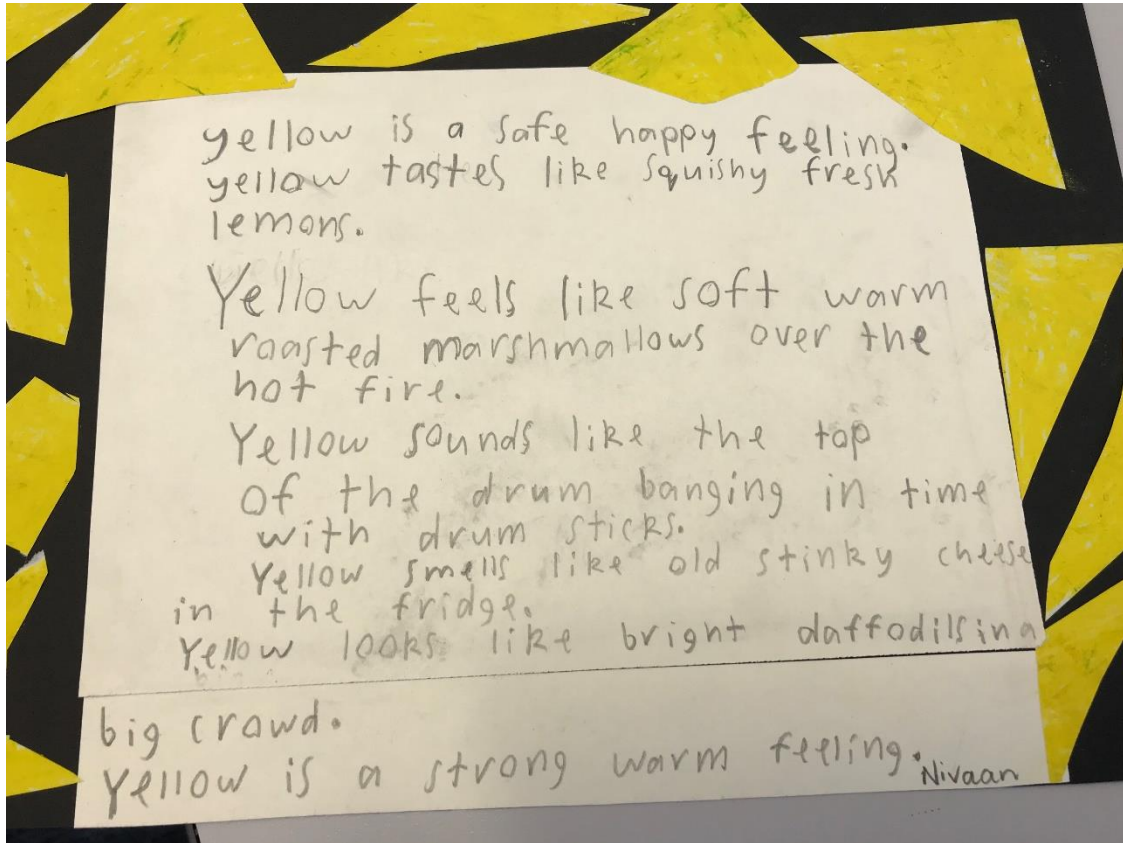 yellow is a safe happy feeling.
yellow tastes like squishy fresh
lemons.
Yellow feels like soft warm
roasted marshmallows over the
hot fire.
Yellow sounds like the top
of the drum banging in time
with drum sticks.
Yellow smells like old stinky cheese
in the fridge.
Yellow looks like bright daffodils in a
big crowd.
Yellow is a strong warm feeling.
Nivaan